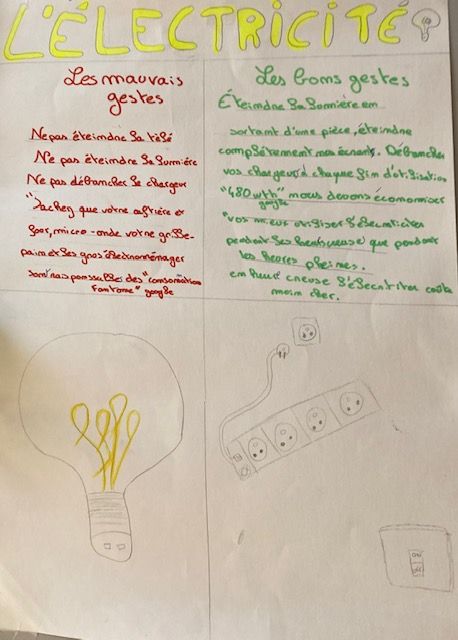 L'ÉLECTRICITÉ
Les mauvais
gestes
Ne pas éteindre la télé
Ne pas éteindre la lumière
Ne pas débrancher le chargeur
"Sachez que votre
four, micro-onde votre grille-
pain et les gros électroménager
sont responsables des "consomation
fantome" google
Les bons gestes
Éteindre la lumière en
sortant d'une pièce, éteindre
complètement nos écrans. Débrancher
vos chargeurs à chaque fin d'utilisation
"480 wth" nous devons économiser
google
"vos mieux utiliser l'électricités
pendant les heures creuse que pendant
les heures pleines.
en heure creuse l'électricité coûte
moin cher.